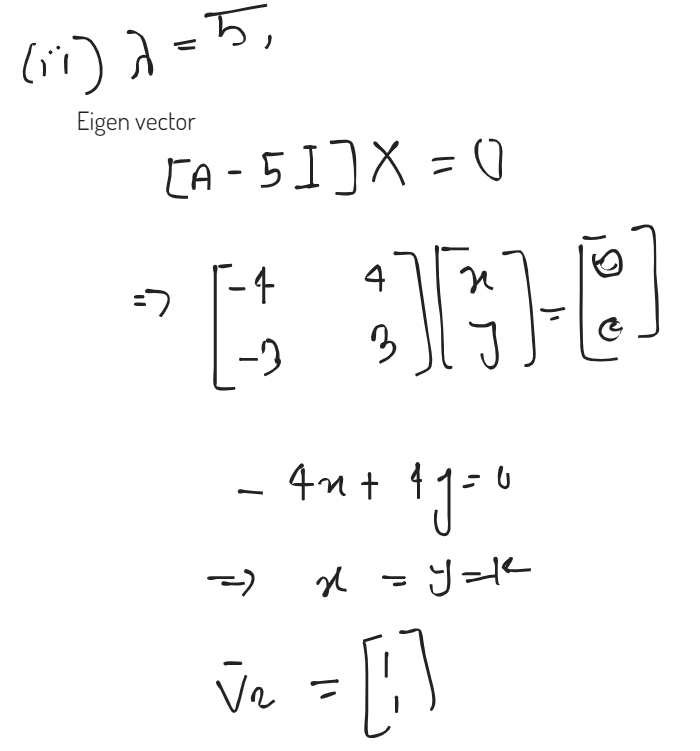 (iii) λ = 5,
Eigen vector
[A - 5I]X = 0
=> [-4 4; -3 3][x; y] = [0; 0]
- 4x + 4y = 0
=> x = y = k
v̄2 = [1; 1]